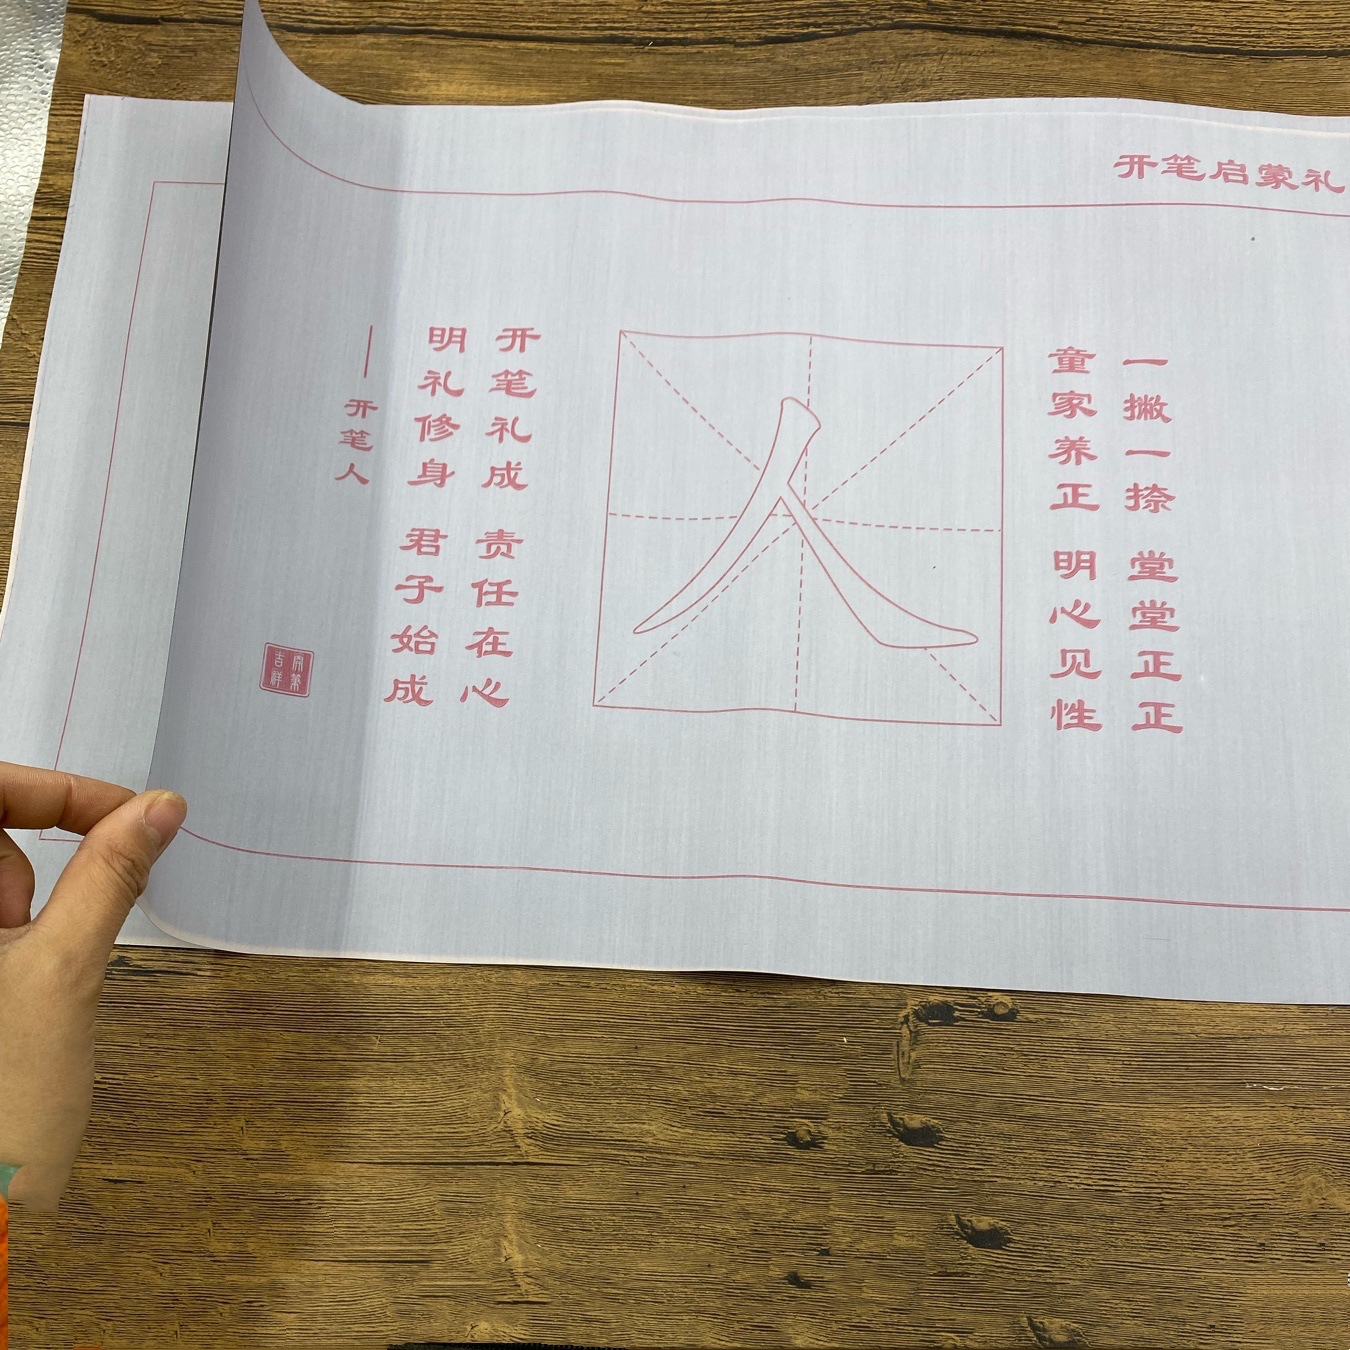 开笔启蒙礼
一撇一捺 堂堂正正
童家养正 明心见性
人
开笔礼成 责任在心
明礼修身 君子始成
——开笔人
开笔吉祥